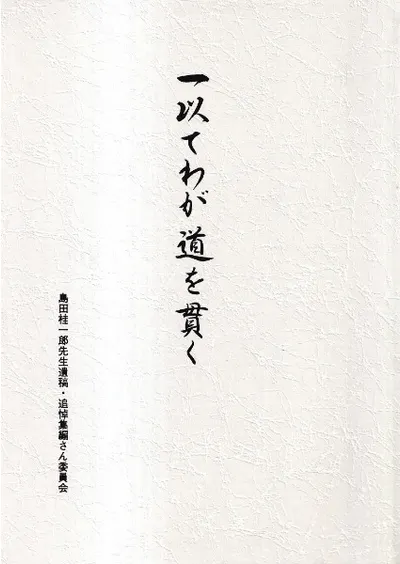 一以てわが道を貫く
島田桂一郎先生遺稿・追悼集編さん委員会